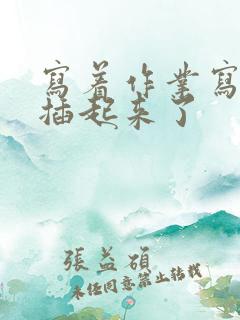 寫着作業寫
插起来了
張益碩
未任同意禁止转載